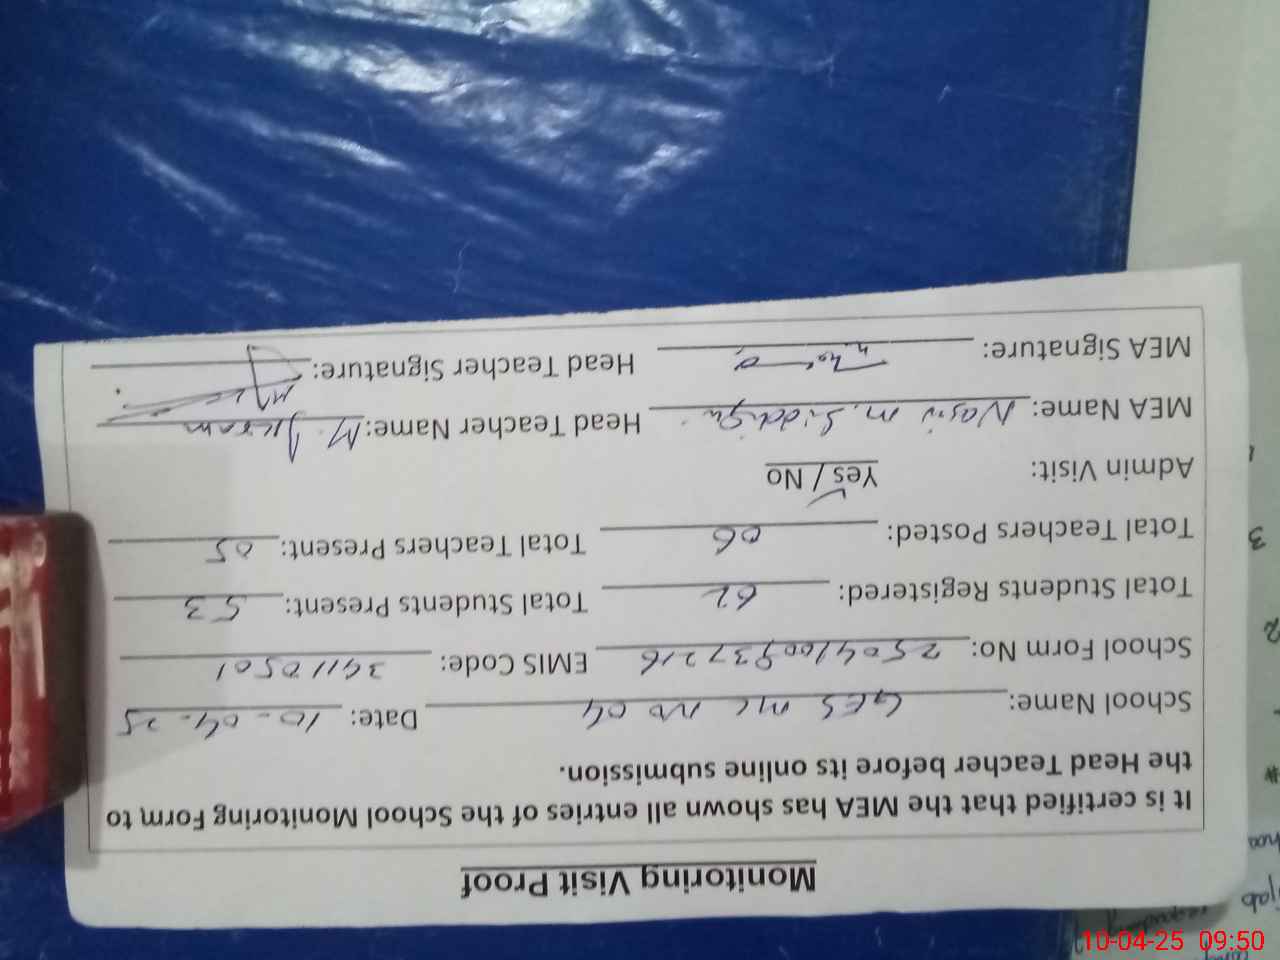 Monitoring Visit Proof
It is certified that the MEA has shown all entries of the School Monitoring Form to
the Head Teacher before its online submission.
School Name: GES MC No 04 Date: 10-04-25
School Form No: 2504100937216 EMIS Code: 34110501
Total Students Registered: 62 Total Students Present: 53
Total Teachers Posted: 06 Total Teachers Present: 05
Admin Visit: Yes / No
MEA Name: Nasir M. Siddiqui Head Teacher Name: M. Ikram
MEA Signature: Head Teacher Signature:
10-04-25 09:50